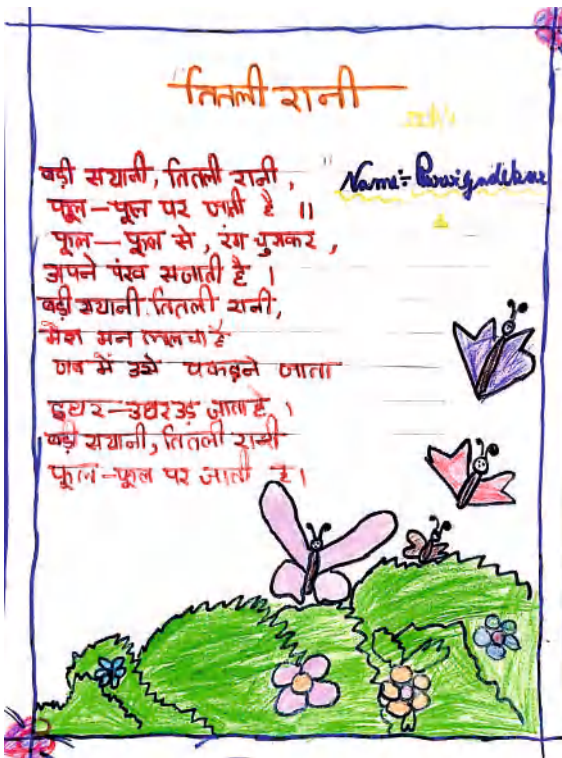 तितली रानी
बड़ी सयानी, तितली रानी,
Name:-
फूल-फूल पर जाती है ॥
फूल-फूल से, रंग चुराकर,
अपने पंख सजाती है ।
बड़ी सयानी तितली रानी,
मेरा मन ललचा है
जब में उसे पकड़ने जाता
इधर-उधर उड़ जाता है ।
बड़ी सयानी, तितली रानी
फूल-फूल पर जाती है ।